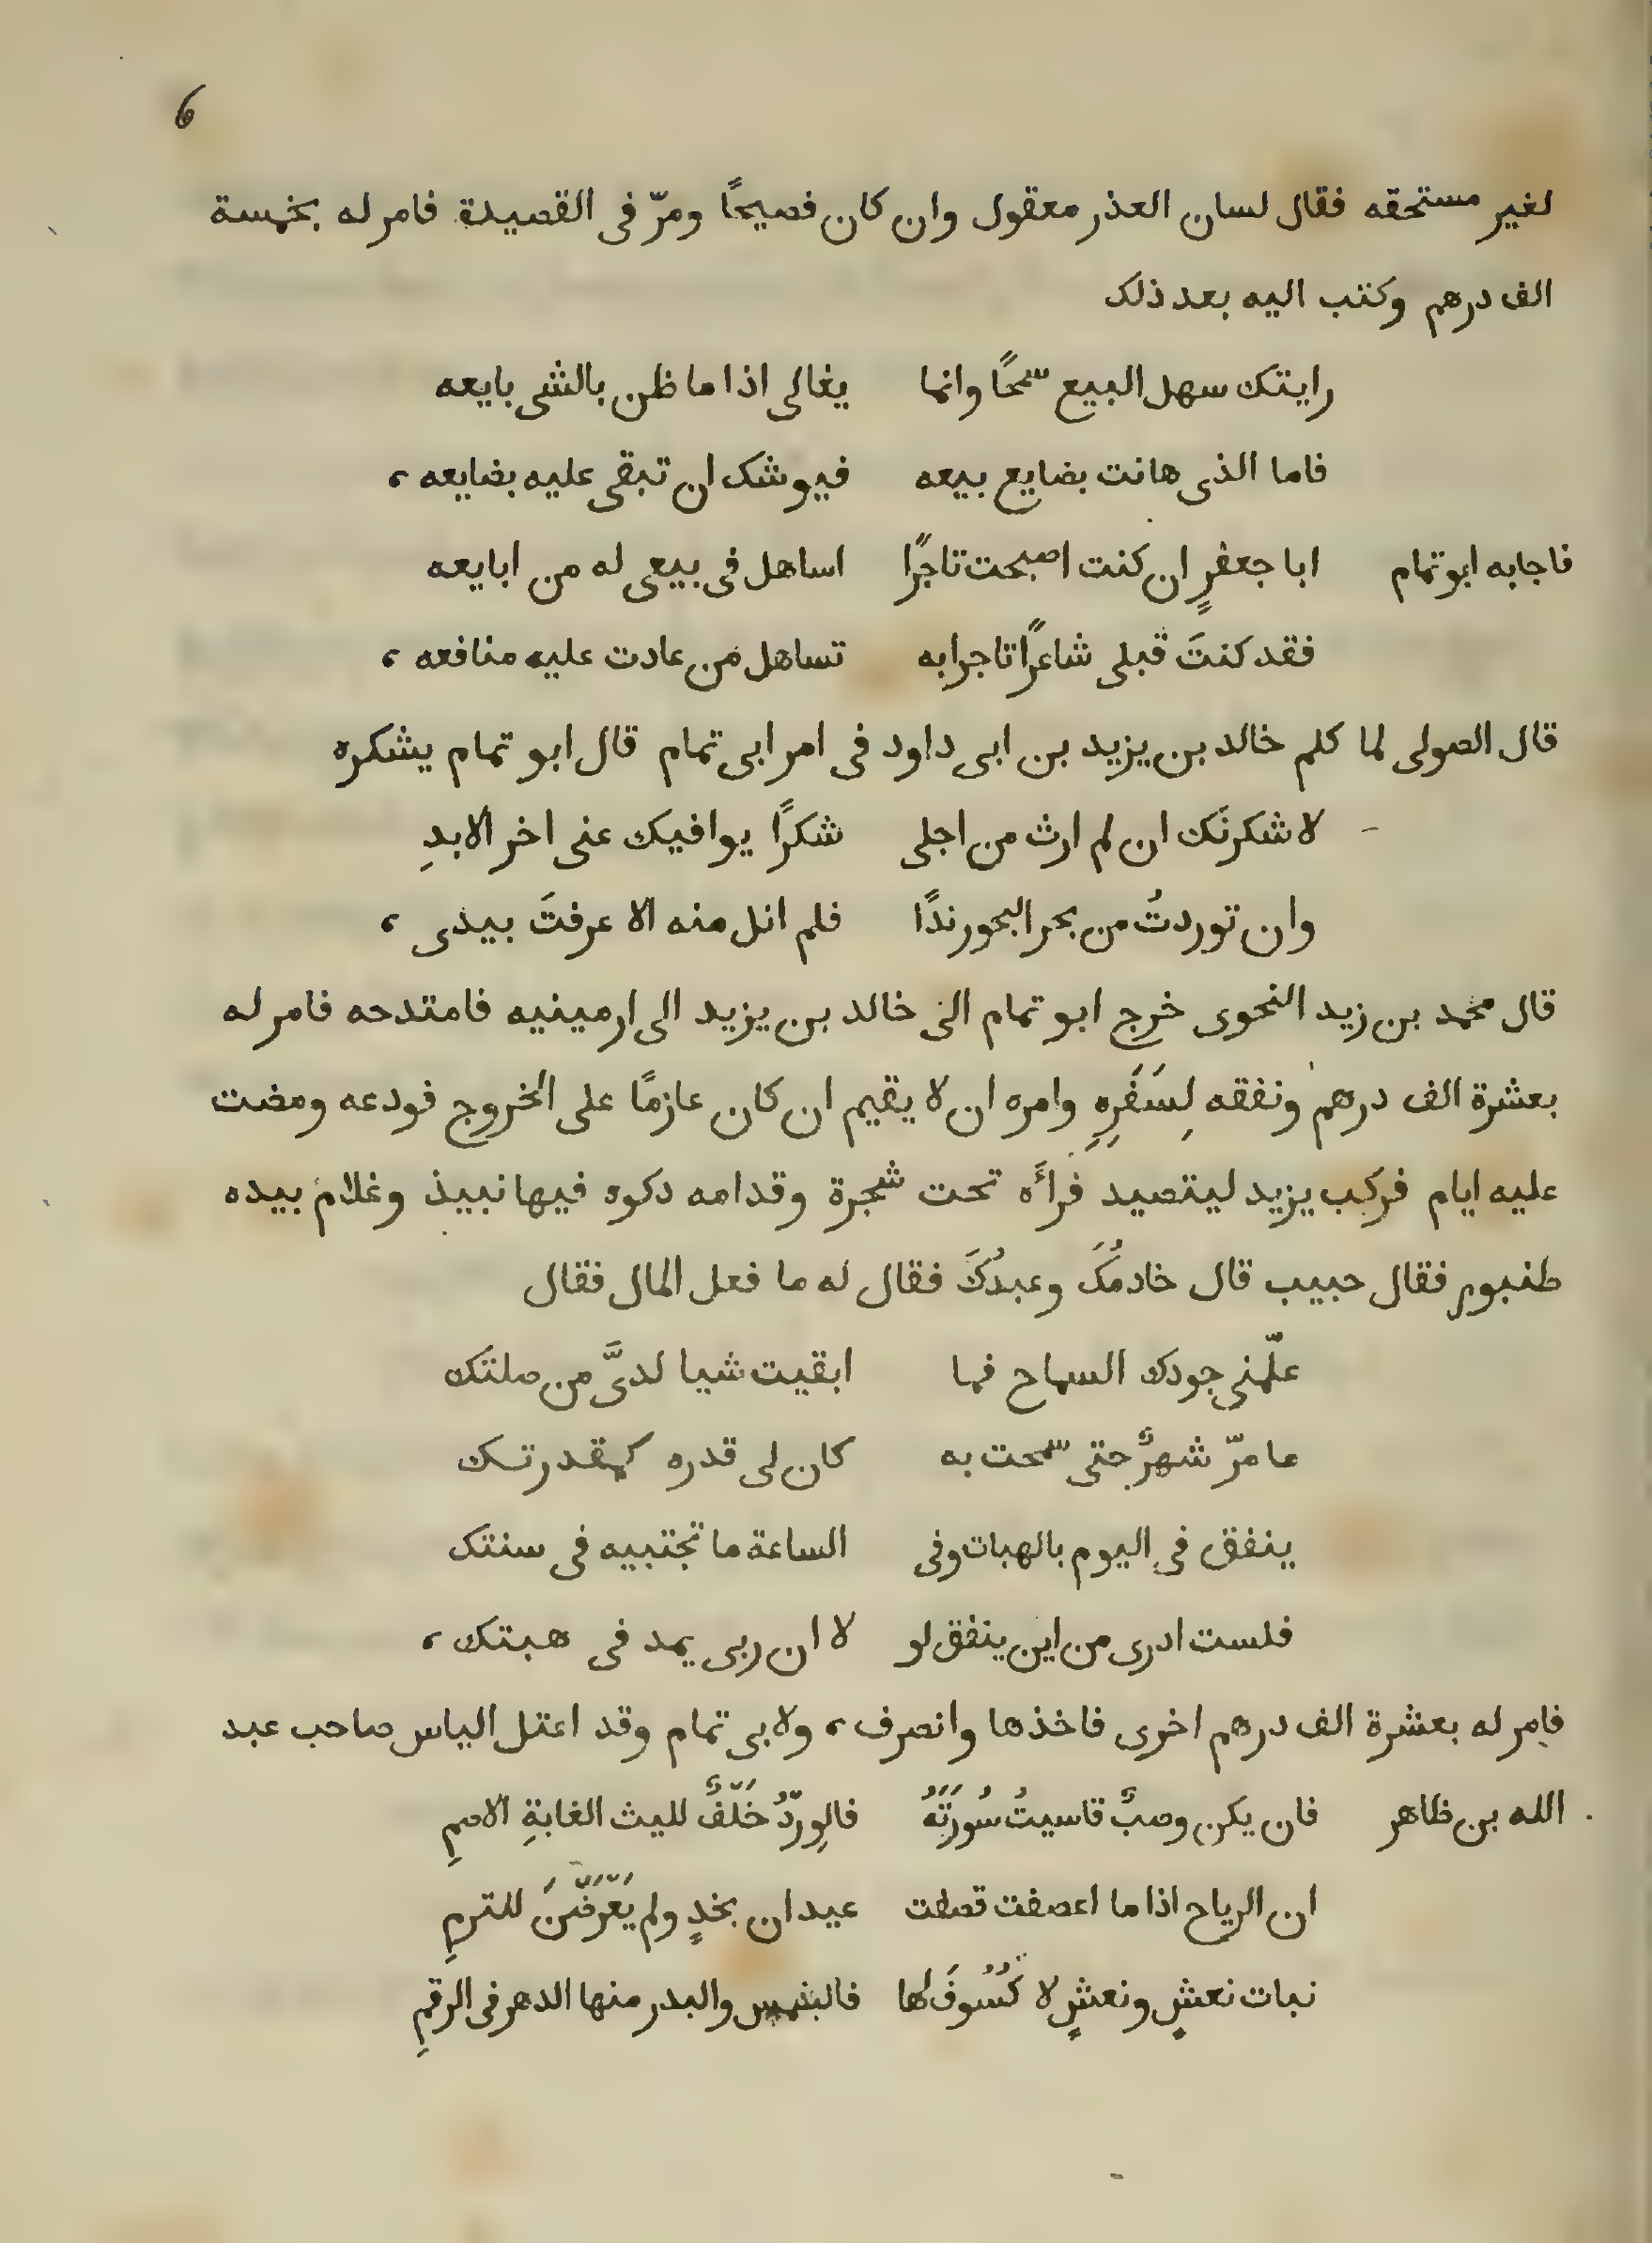 6
لغير مستحقه فقال لسان العذر معقول وان كان فصيحًا ومرّ فى القصيدة فامر له بخمسة
الف درهم وكتب اليه بعد ذلك
رايتك سهل البيع سمحًا وانما يغالى اذا ما ظن بالشى بايعه
فاما الذى هانت بضايع بيعه فيوشك ان تبقى عليه بضايعه ،
فاجابه ابو تمام ابا جعفرٍ ان كنت اصبحت تاجرًا اساهل فى بيعى له من ابايعه
فقد كنتَ قبلى شاعرًا تاجرا به تساهل من عادت عليه منافعه ،
قال الصولى لما كلم خالد بن يزيد بن ابى داود فى امر ابى تمام قال ابو تمام يشكره
لاشكرنَك ان لم ارث من اجلى شكرًا يوافيك عنى اخر الابدِ
وان توردتُ من بحر البحور ندًا فلم انل منه الا عرفتَ بيدى ،
قال محمد بن زيد النحوى خرج ابو تمام الى خالد بن يزيد الى ارمينيه فامتدحه فامر له
بعشرة الف درهم ونفقه لِسَفَرِهِ وامره ان لا يقيم ان كان عازمًا على الخروج فودعه ومضت
عليه ايام فركب يزيد ليتصيد فرأَه تحت شجرة وقدامه دكوه فيها نبيذ وغلام بيده
طنبور فقال حبيب قال خادمُكَ وعبدُكَ فقال له ما فعل المال فقال
علّمنى جودك السماح فما ابقيت شيا لدىَّ من صلتك
ما مرّ شهرٌ حتى سمحت به كان لى قدره كمقدرتك
ينفق فى اليوم بالهبات وفى الساعة ما تجتبيه فى سنتك
فلست ادرى من اين ينفق لو لا ان ربى يمد فى هبتك ،
فامر له بعشرة الف درهم اخرى فاخذها وانصرف ، ولابى تمام وقد اعتل الياس صاحب عبد
الله بن ظاهر فان يكن وصبٌ قاسيتُ سُورَتَهُ فالوِردُ خَلّفٌ لليث الغابةِ الاصمِ
ان الرياح اذا ما اعصفت قصفت عيدان بخدٍ ولم يَعّرَفّنَ للترمِ
نبات نعشٍ ونعشٍ لا كُسُوفَ لها فالشمس والبدر منها الدهر فى الرقمِ